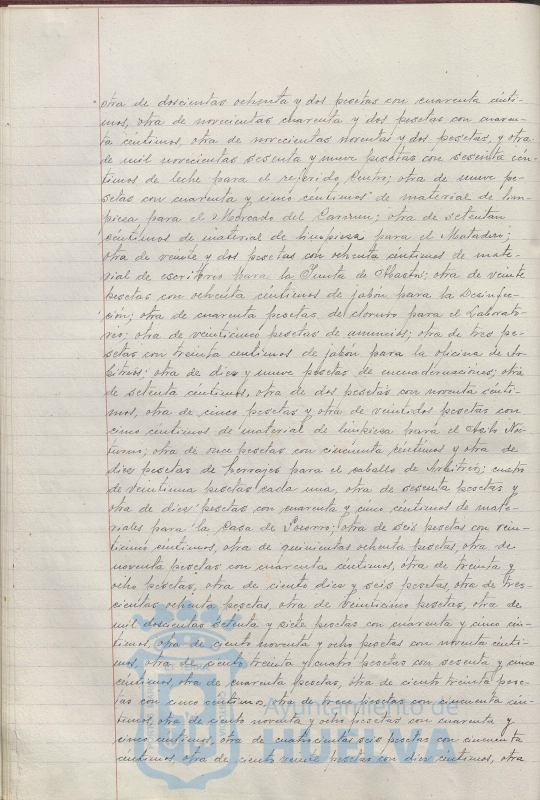 otra de doscientas ochenta y dos pesetas con cuarenta cénti-
mos, otra de novecientas cuarenta y dos pesetas con cuaren-
ta céntimos, otra de novecientas noventa y dos pesetas, y otra
de mil novecientas sesenta y nueve pesetas con sesenta cén-
timos de leche para el referido Centro; otra de nueve pe-
setas con cuarenta y cinco céntimos de material de lim-
pieza para el Mercado del Carmen; otra de setenta
céntimos de material de limpieza para el Matadero;
otra de veinte y dos pesetas con ochenta céntimos de mate-
rial de escritorio para la Junta de; otra de veinte
pesetas con ochenta céntimos de jabón para la Desinfec-
ción; otra de cuarenta pesetas de cloruro para el Laborato-
rio; otra de veinticinco pesetas de anuncios; otra de tres pe-
setas con treinta céntimos de jabón para la oficina de Ar-
bitrios; otra de diez y nueve pesetas de encuadernaciones; otra
de setenta céntimos, otra de dos pesetas con noventa cénti-
mos, otra de cinco pesetas y otra de veintidos pesetas con
cinco céntimos de material de limpieza para el Asilo Noc-
turno; otra de once pesetas con cincuenta céntimos y otra de
diez pesetas de herrajes para el caballo de Arbitrios; cuatro
de veintiuna pesetas cada una, otra de sesenta pesetas y
otra de diez pesetas con cuarenta y cinco céntimos de mate-
riales para la Casa de Socorro; otra de seis pesetas con vein-
ticinco céntimos, otra de quinientas ochenta pesetas, otra de
noventa pesetas con cuarenta céntimos, otra de treinta y
ocho pesetas, otra de ciento diez y seis pesetas, otra de tres-
cientas ochenta pesetas, otra de veinticinco pesetas, otra de
mil doscientas setenta y siete pesetas con cuarenta y cinco cén-
timos, otra de ciento noventa y ocho pesetas con noventa cénti-
mos, otra de ciento treinta y cuatro pesetas con sesenta y cinco
céntimos, otra de cuarenta pesetas, otra de ciento treinta pese-
tas con cinco céntimos, otra de trece pesetas con cincuenta cén-
timos, otra de ciento noventa y ocho pesetas con cuarenta y
cinco céntimos, otra de cuatrocientas seis pesetas con cincuenta
céntimos, otra de ciento veinte pesetas con diez céntimos, otra
Ayuntamiento de
HUELVA